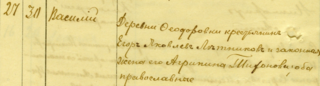 27 30 Василий
Деревни Феодоровки крестьянин
Егор Яковлев Лютиков и законная
жена его Агрипина Тихоновна, оба
православные